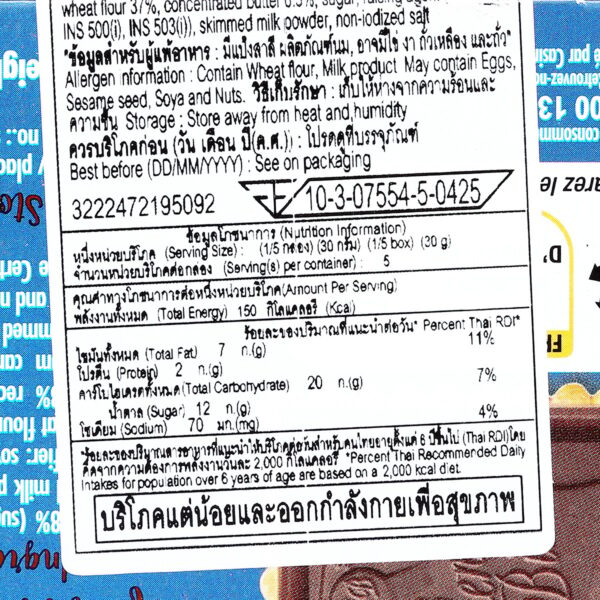 wheat flour 37%, concentrated butter 6.3%, sugar, raising agent
INS 500(i), INS 503(i)), skimmed milk powder, non-iodized salt
"ข้อมูลสำหรับผู้แพ้อาหาร : มีแป้งสาลี ผลิตภัณฑ์นม, อาจมีไข่ งา ถั่วเหลือง และถั่ว"
Allergen information : Contain Wheat flour, Milk product. May contain Eggs,
Sesame seed, Soya and Nuts. วิธีเก็บรักษา : เก็บให้ห่างจากความร้อนและ
ความชื้น Storage : Store away from heat and humidity
ควรบริโภคก่อน (วัน เดือน ปี(ค.ศ.)) : โปรดดูที่บรรจุภัณฑ์
Best before (DD/MM/YYYY) : See on packaging
3222472195092 10-3-07554-5-0425
ข้อมูลโภชนาการ (Nutrition Information)
หนึ่งหน่วยบริโภค (Serving Size) : (1/5 กล่อง) (30 กรัม) (1/5 box) (30 g)
จำนวนหน่วยบริโภคต่อกล่อง (Serving(s) per container) : 5
คุณค่าทางโภชนาการต่อหนึ่งหน่วยบริโภค(Amount Per Serving)
พลังงานทั้งหมด (Total Energy) 150 กิโลแคลอรี (Kcal)
ร้อยละของปริมาณที่แนะนำต่อวัน* Percent Thai RDI*
ไขมันทั้งหมด (Total Fat) 7 ก.(g) 11%
โปรตีน (Protein) 2 ก.(g)
คาร์โบไฮเดรตทั้งหมด(Total Carbohydrate) 20 ก.(g) 7%
น้ำตาล (Sugar) 12 ก.(g)
โซเดียม (Sodium) 70 มก.(mg) 4%
*ร้อยละของปริมาณสารอาหารที่แนะนำให้บริโภคต่อวันสำหรับคนไทยอายุตั้งแต่ 6 ปีขึ้นไป (Thai RDI)โดย
คิดจากความต้องการพลังงานวันละ 2,000 กิโลแคลอรี *Percent Thai Recommended Daily
Intakes for population over 6 years of age are based on a 2,000 kcal diet.
บริโภคแต่น้อยและออกกำลังกายเพื่อสุขภาพ